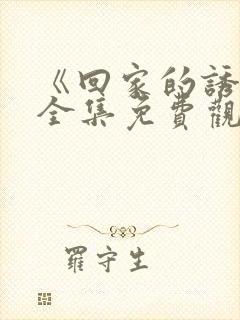 《回家的誘
全集免費觀
羅守生